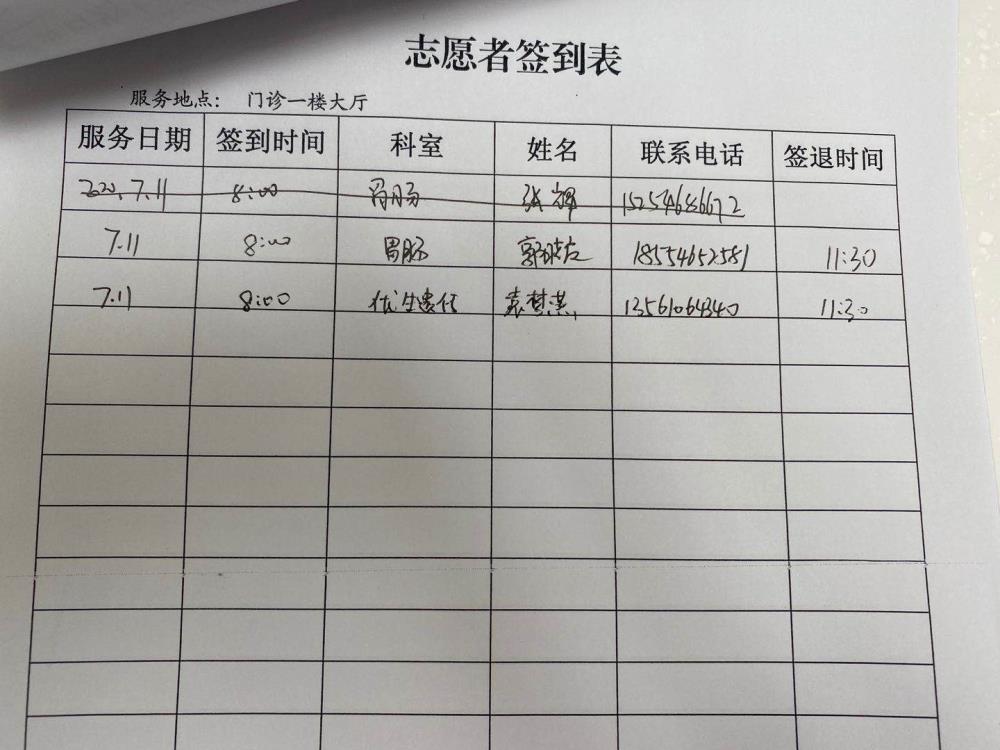 志愿者签到表
服务地点: 门诊一楼大厅
服务日期 签到时间 科室 姓名 联系电话 签退时间
2020.7.11 8:00 胃肠 张 15254686672
7.11 8:00 胃肠 郭 18554652581 11:30
7.11 8:00 优生遗传 袁梦 13561064340 11:30